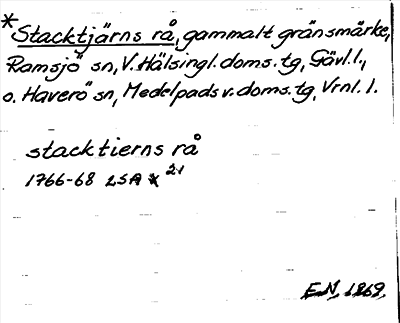 *Stacktjärns rå, gammalt gränsmärke,
Ramsjö sn, V. Hälsingl. doms. tg, Gävl. l.,
o. Haverö sn, Medelpads v. doms. tg, Vrnl. l.
stacktierns rå
1766-68 LSA X 21
E.N. 1969.